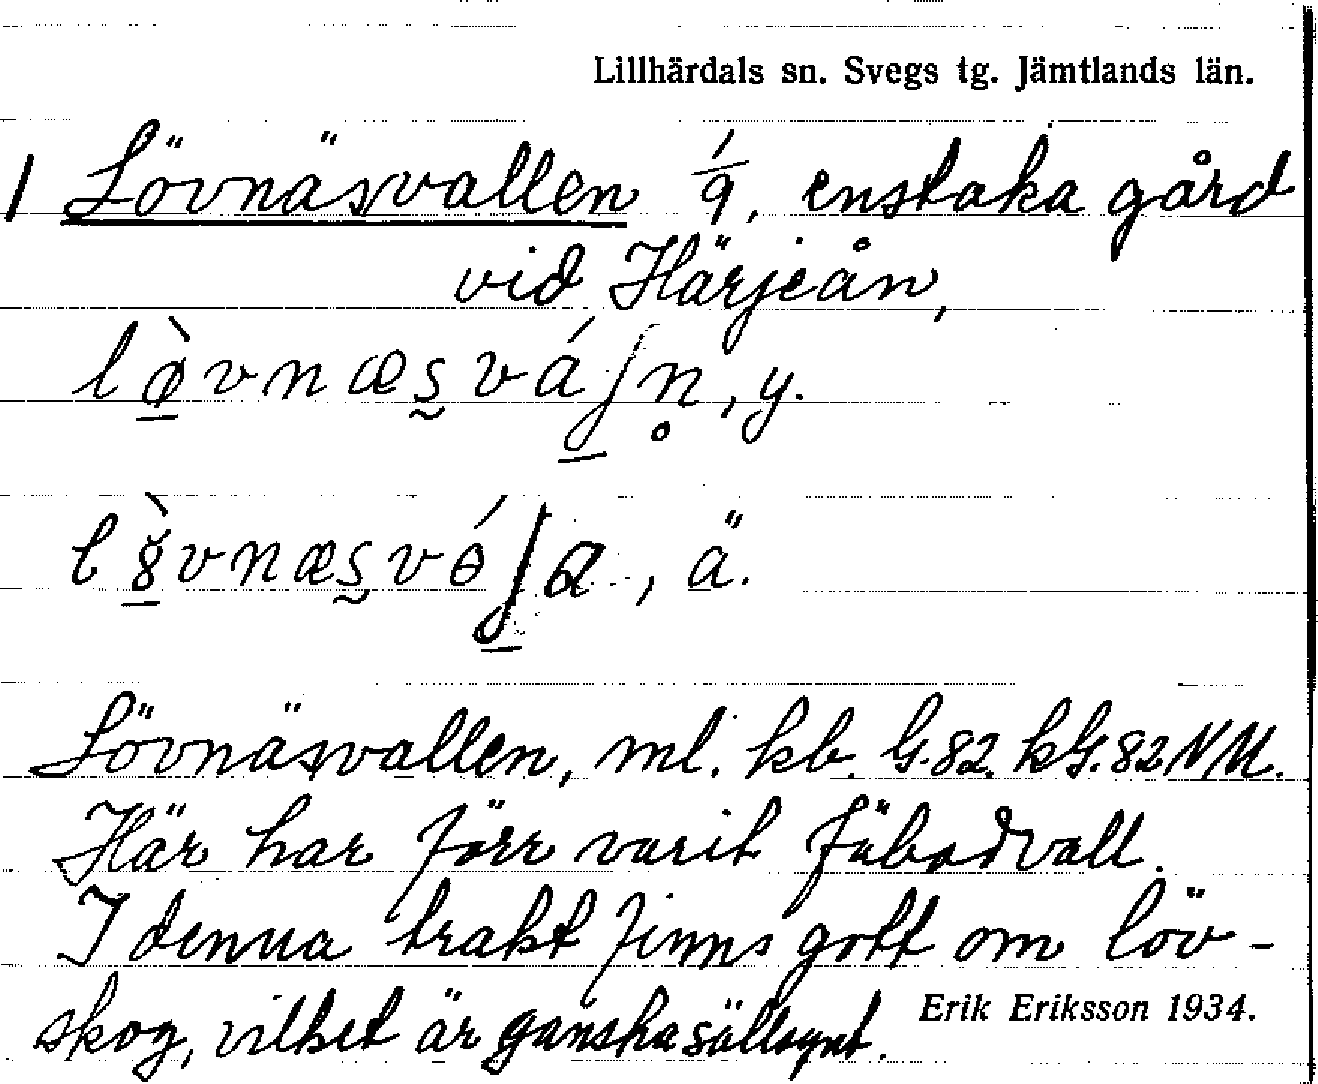 Lillhärdals sn. Svegs tg. Jämtlands län.
1 Lövnäsvallen 1/9, enstaka gård
vid Härjeån,
, y.
, ä.
Lövnäsvallen, ml. kb. G.82. kG.82 NM.
Här har förr varit fäbodvall.
I denna trakt finns gott om löv-
skog, vilket är ganska sällsynt.
Erik Eriksson 1934.